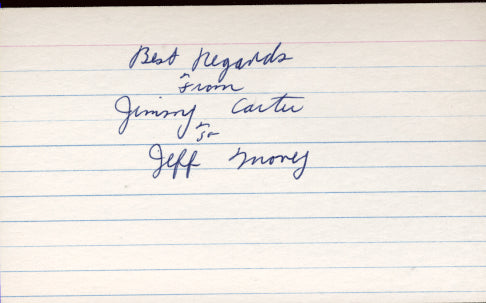 Best Regards
From
Jimmy Carter
to
Jeff